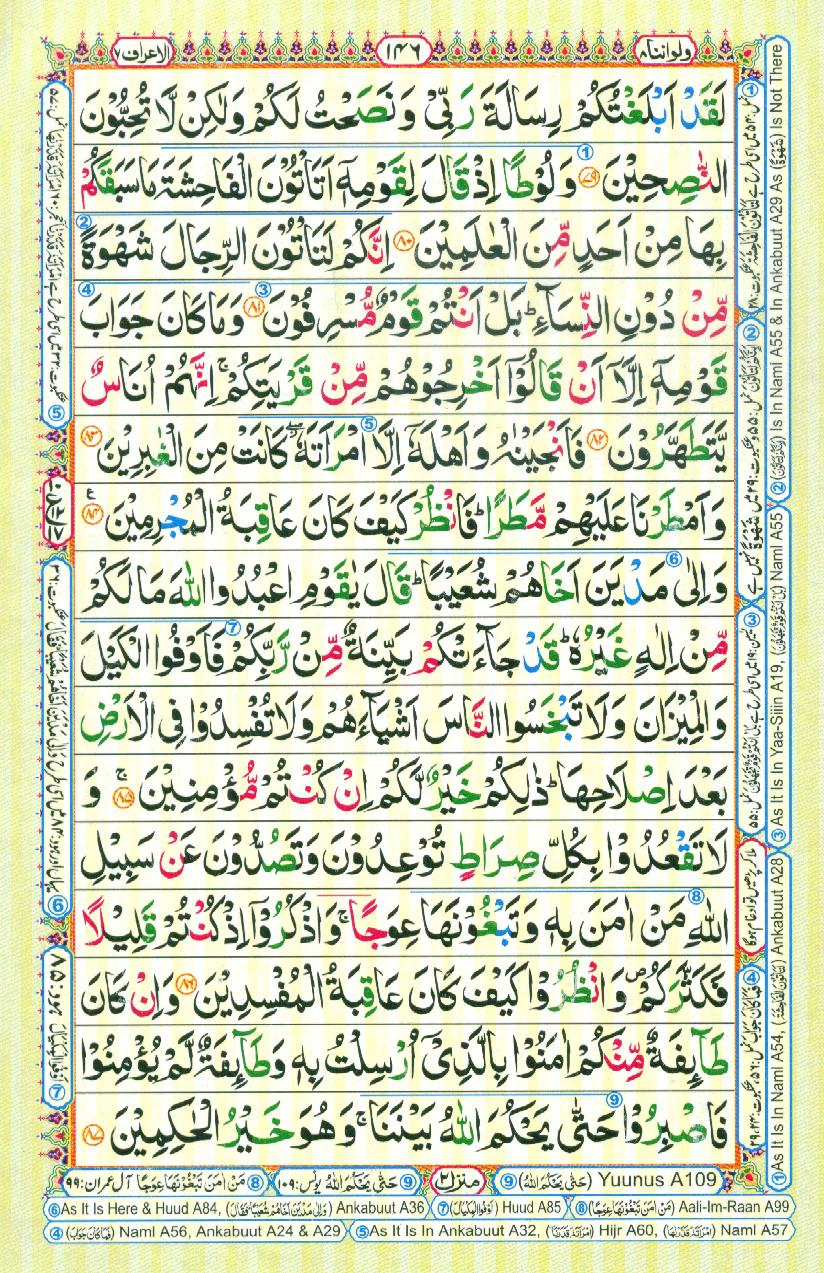 ولواننا ٨
١٤٦
الاعراف ٧
لَقَدْ اَبْلَغْتُكُمْ رِسَالَةَ رَبِّیْ وَ نَصَحْتُ لَكُمْ وَلٰكِنْ لَّا تُحِبُّوْنَ
النّٰصِحِیْنَ ﴿٧٩﴾ وَ لُوْطًا اِذْ قَالَ لِقَوْمِهٖۤ اَتَاْتُوْنَ الْفَاحِشَةَ مَا سَبَقَكُمْ
بِهَا مِنْ اَحَدٍ مِّنَ الْعٰلَمِیْنَ ﴿٨٠﴾ اِنَّكُمْ لَتَاْتُوْنَ الرِّجَالَ شَهْوَةً
مِّنْ دُوْنِ النِّسَآءِ ؕ بَلْ اَنْتُمْ قَوْمٌ مُّسْرِفُوْنَ ﴿٨١﴾ وَمَا كَانَ جَوَابَ
قَوْمِهٖۤ اِلَّاۤ اَنْ قَالُوْۤا اَخْرِجُوْهُمْ مِّنْ قَرْیَتِكُمْ ۚ اِنَّهُمْ اُنَاسٌ
یَّتَطَهَّرُوْنَ ﴿٨٢﴾ فَاَنْجَیْنٰهُ وَ اَهْلَهٗۤ اِلَّا امْرَاَتَهٗ ۖؗ كَانَتْ مِنَ الْغٰبِرِیْنَ ﴿٨٣﴾
وَ اَمْطَرْنَا عَلَیْهِمْ مَّطَرًا ؕ فَانْظُرْ كَیْفَ كَانَ عَاقِبَةُ الْمُجْرِمِیْنَ ﴿٨٤﴾
وَ اِلٰی مَدْیَنَ اَخَاهُمْ شُعَیْبًا ؕ قَالَ یٰقَوْمِ اعْبُدُوا اللّٰهَ مَا لَكُمْ
مِّنْ اِلٰهٍ غَیْرُهٗ ؕ قَدْ جَآءَتْكُمْ بَیِّنَةٌ مِّنْ رَّبِّكُمْ فَاَوْفُوا الْكَیْلَ
وَالْمِیْزَانَ وَلَا تَبْخَسُوا النَّاسَ اَشْیَآءَهُمْ وَلَا تُفْسِدُوْا فِی الْاَرْضِ
بَعْدَ اِصْلَاحِهَا ؕ ذٰلِكُمْ خَیْرٌ لَّكُمْ اِنْ كُنْتُمْ مُّؤْمِنِیْنَ ۚ ﴿٨٥﴾ وَ
لَا تَقْعُدُوْا بِكُلِّ صِرَاطٍ تُوْعِدُوْنَ وَتَصُدُّوْنَ عَنْ سَبِیْلِ
اللّٰهِ مَنْ اٰمَنَ بِهٖ وَ تَبْغُوْنَهَا عِوَجًا ۚ وَ اذْكُرُوْۤا اِذْ كُنْتُمْ قَلِیْلًا
فَكَثَّرَكُمْ ۪ وَ انْظُرُوْا كَیْفَ كَانَ عَاقِبَةُ الْمُفْسِدِیْنَ ﴿٨٦﴾ وَ اِنْ كَانَ
طَآىِٕفَةٌ مِّنْكُمْ اٰمَنُوْا بِالَّذِیْۤ اُرْسِلْتُ بِهٖ وَ طَآىِٕفَةٌ لَّمْ یُؤْمِنُوْا
فَاصْبِرُوْا حَتّٰی یَحْكُمَ اللّٰهُ بَیْنَنَا ۚ وَ هُوَ خَیْرُ الْحٰكِمِیْنَ ﴿٨٧﴾
① As It Is In Naml A54, (تَاْتُوْنَ الْفَاحِشَةَ) Ankabuut A28
③ As It Is In Yaa-Siiin A19, Naml A55
② Is In Naml A55 & In Ankabuut A29 As (شَهْوَةً) Is Not There
⑨ (حَتّٰی یَحْكُمَ اللّٰهُ) Yuunus A109
منزل ٢
⑨ حَتّٰی یَحْكُمَ اللّٰهُ یونس: ١٠٩
⑧ مَنْ اٰمَنَ تَبْغُوْنَهَا عِوَجًا آل عمران: ٩٩
⑥As It Is Here & Huud A84, (وَاِلٰی مَدْیَنَ اَخَاهُمْ شُعَیْبًا فَقَالَ) Ankabuut A36 ⑦(اَوْفُوا الْمِكْیَالَ) Huud A85 ⑧(مَنْ اٰمَنَ تَبْغُوْنَهَا عِوَجًا) Aali-Im-Raan A99
④(فَمَا كَانَ جَوَابَ) Naml A56, Ankabuut A24 & A29 ⑤As It Is In Ankabuut A32, (امْرَاَتَهٗ قَدَّرْنَا) Hijr A60, (امْرَاَتَهٗ قَدَّرْنٰهَا) Naml A57